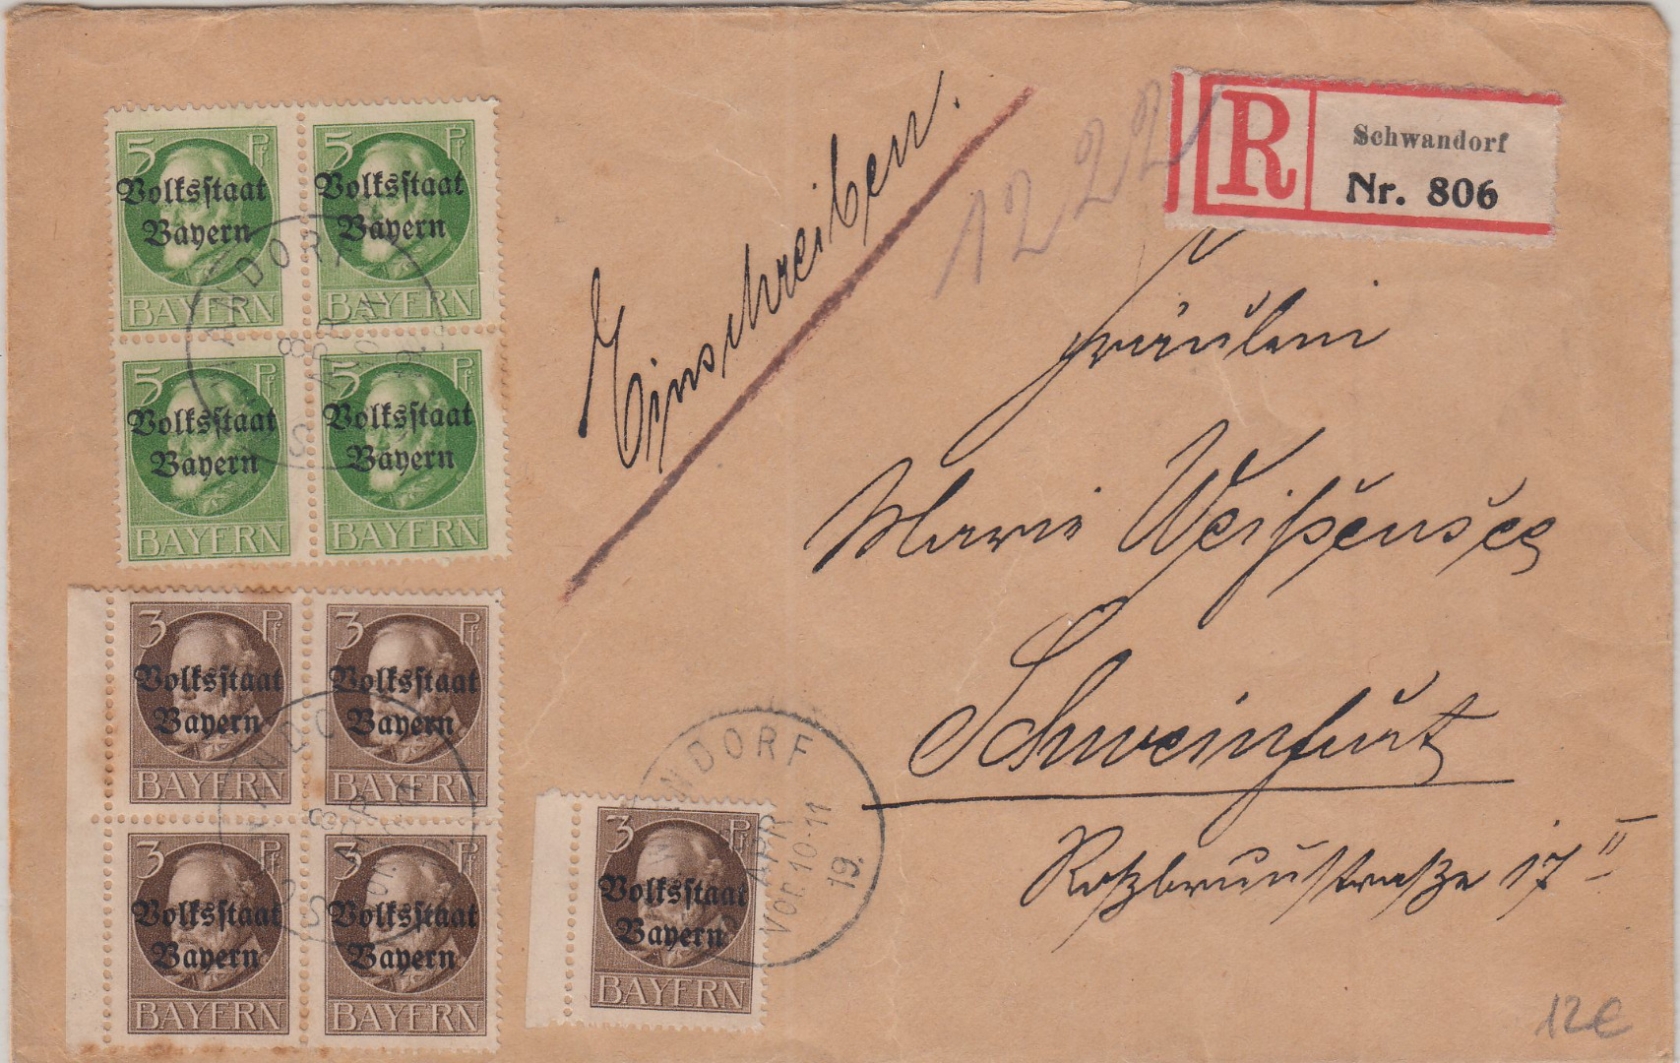 5 Pf 5 Pf
Volksstaat Volksstaat
Bayern Bayern
BAYERN BAYERN
5 Pf 5 Pf
Volksstaat Volksstaat
Bayern Bayern
BAYERN BAYERN
3 Pf 3 Pf
Volksstaat Volksstaat
Bayern Bayern
BAYERN BAYERN
3 Pf 3 Pf
Volksstaat Volksstaat
Bayern Bayern
BAYERN BAYERN
3 Pf
Volksstaat
Bayern
BAYERN
NDORF
APR
Vor. 10-11
19.
Einschreiben.
12 22
R
Schwandorf
Nr. 806
Fräulein
Marie Weißensee
Schweinfurt
17 II
12€